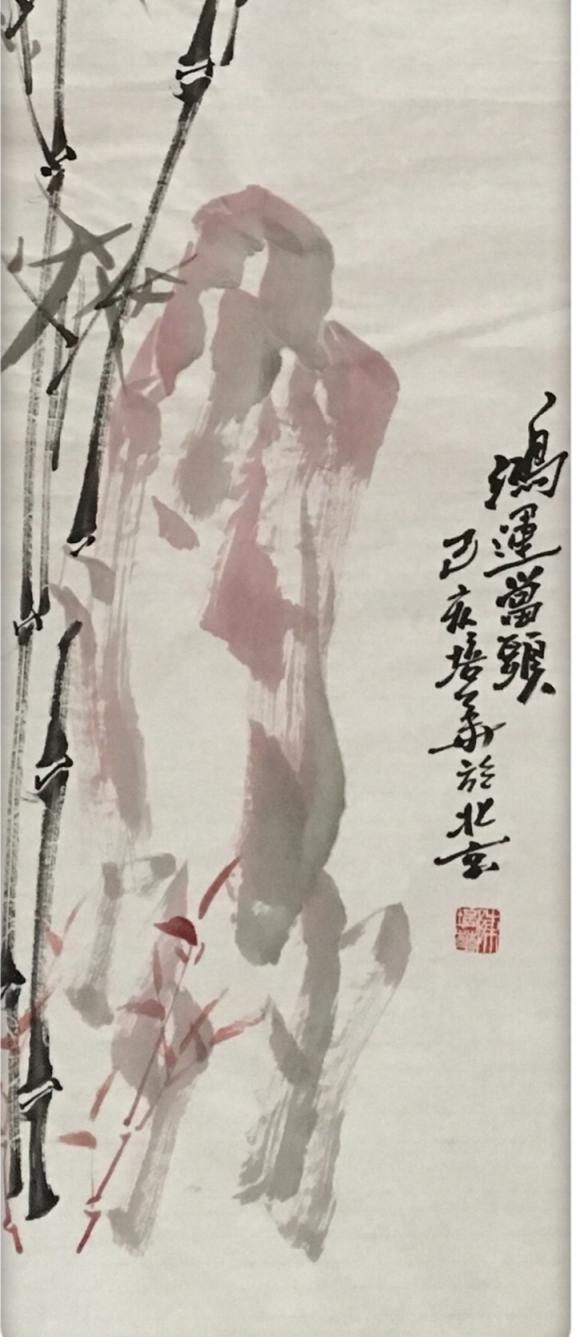 鴻運當頭
己亥培華於北京